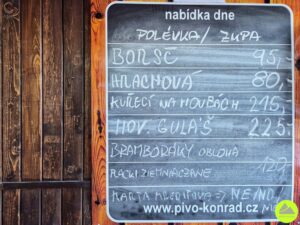 nabídka dne
POLÉVKA / ZUPA
BORŠČ 95,-
HRACHOVÁ 80,-
KUŘECÍ NA HOUBÁCH 215,-
HOV. GULÁŠ 225,-
BRAMBORÁKY OBLOHA
RACKI ZIEMNIACZANE
KARTA
www.pivo-konrad.cz